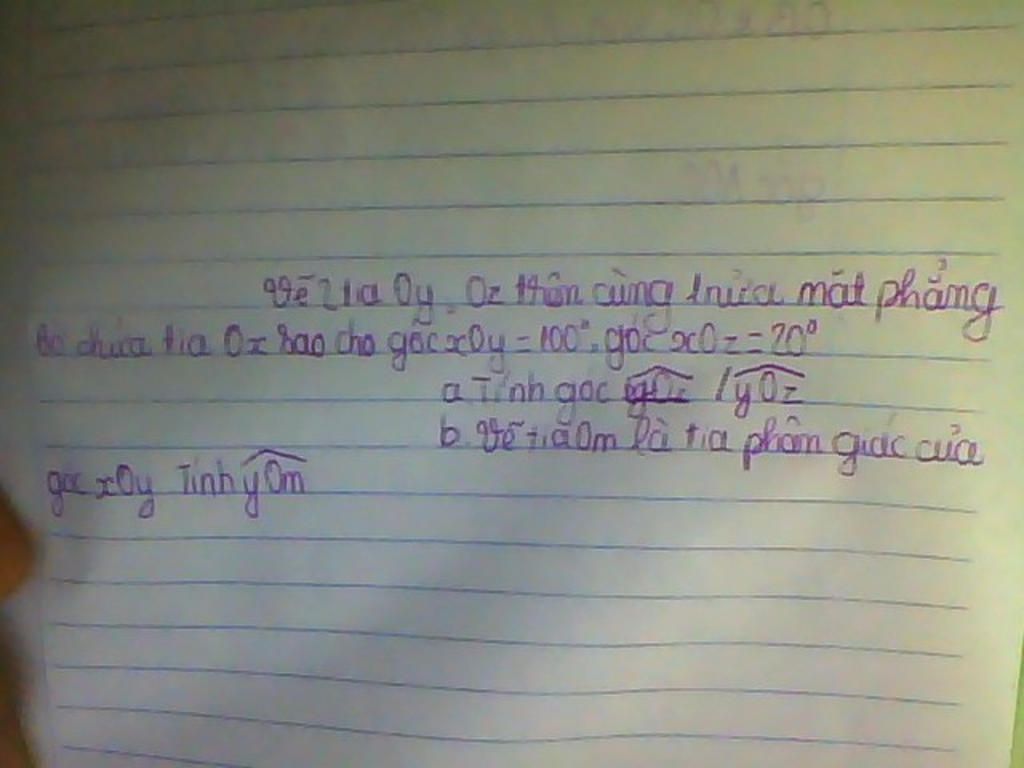 Vẽ 2 tia Oy, Oz trên cùng 1 nửa mặt phẳng
bờ chứa tia Ox sao cho góc xOy = 100°, góc xOz = 20°
a Tính góc yOz
b. Vẽ tia Om là tia phân giác của
góc xOy Tính yOm